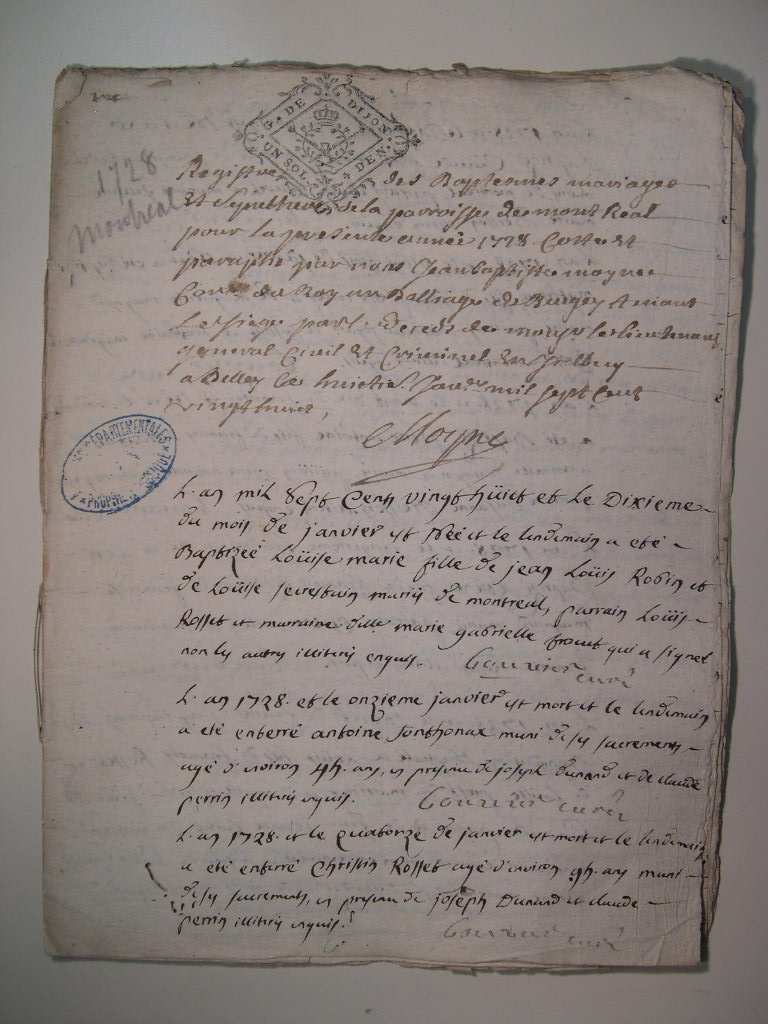 1728
Montreal
G. DE DIJON
UN SOL 4 DEN.
Registre des Baptesmes mariages
Et Sepultures de la parroisse de mont Real
pour la presente année 1728 Cotté Et
paraphé par nous Jean baptiste moyne
Conr. du Roy au Balliage de Bugey
Le siege par deceds de monsr le lieutenant
general Civil Et Criminel
a Belley le huictie. Janr. mil sept Cent
vingt huict,
Moyne
DEPARTEMENTALES
PROPRIETE PUBLIQUE
L'an mil sept Cents vingt hüict et le Dixieme
du mois de janvier est Née et le lendemain a eté
Baptizéé Loüise marie fille de jean Loüis Robin et
de Loüise secrestain mariés de montreal, parrain Loüis
Rosset et marraine dlle marie gabrielle qui a signet
non les autres illiterés enquis. curé
L'an 1728. et le onzieme janvier est mort et le lendemain
a eté enterré antoine Sonthonax muni de ses sacrements
agé d'environ ans, en presence de joseph Dunand et de claude
perrin illiterés enquis. curé
L'an 1728. et le quatorze de janvier est mort et le lendemain
a eté enterré Christin Rosset agé d'environ ans muni
de ses sacrements, en presence de joseph Dunand et claude
perrin illiterés enquis. curé